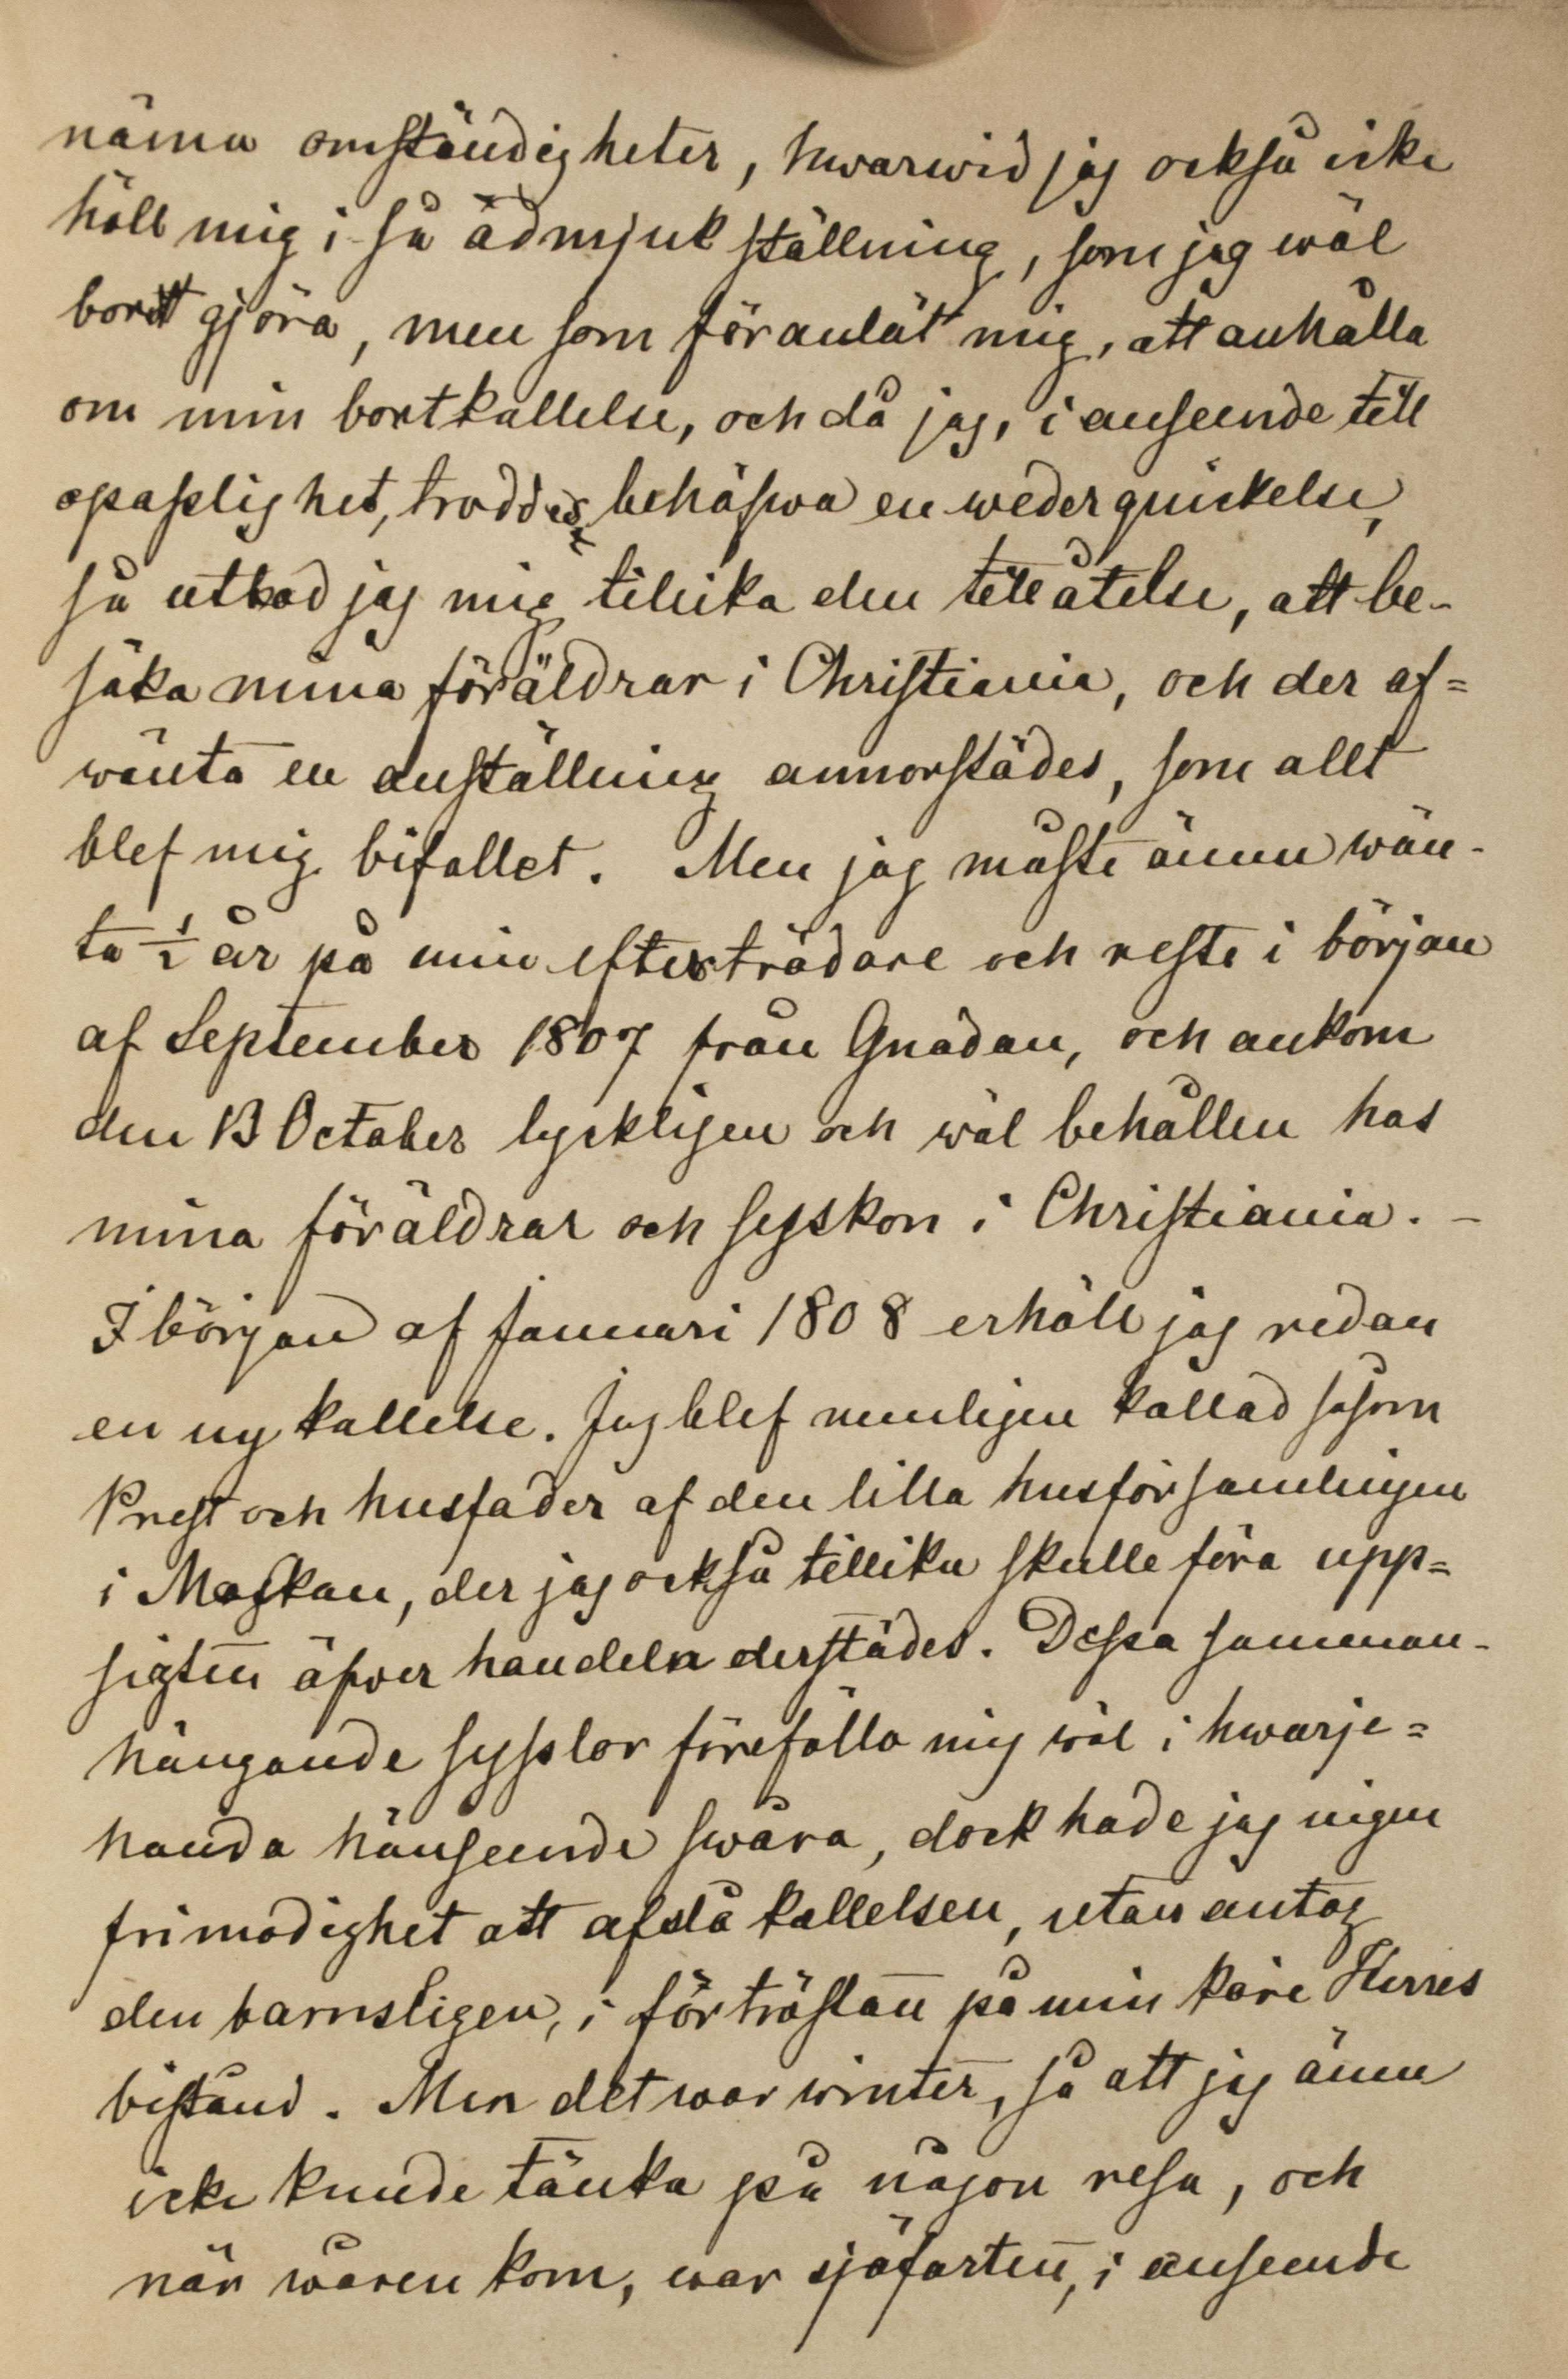 näma omständigheter, hwarwid jag också icke
höll mig i så ödmjuk ställning, som jag wäl
bordt gjöra, men som föranlät mig, att anhålla
om min bortkallelse, och då jag, i anseende till
opasslighet, troddes behöfwa en wederquickelse,
så utbad jag mig tillika den tillåtelse, att be-
söka mina föräldrar i Christiania, och der af=
wänta en anställning annorstädes, som allt
blef mig bifallet. Men jag måste ännu wän-
ta ½ år på min efterträdare och reste i början
af September 1807 från Gnadau, och ankom
den 13 October lyckligen och wäl behållen hos
mina föräldrar och syskon i Christiania. –
I början af Januari 1808 erhöll jag redan
en ny kallelse. Jag blef nemligen kallad såsom
Prest och husfader af den lilla husförsamlingen
i Moskau, der jag också tillika skulle föra upp=
sigten öfwer handeln derstädes. Dessa samman-
hängande sysslor föreföllo mig wäl i hwarje=
handa hänseende swåra, dock hade jag ingen
frimodighet att afslå kallelsen, utan antog
den barnsligen, i förtröstan på min käre Herres
bistånd. Men det war winter, så att jag ännu
icke kunde tänka på någon resa, och
när wåren kom, war sjöfarten, i anseende